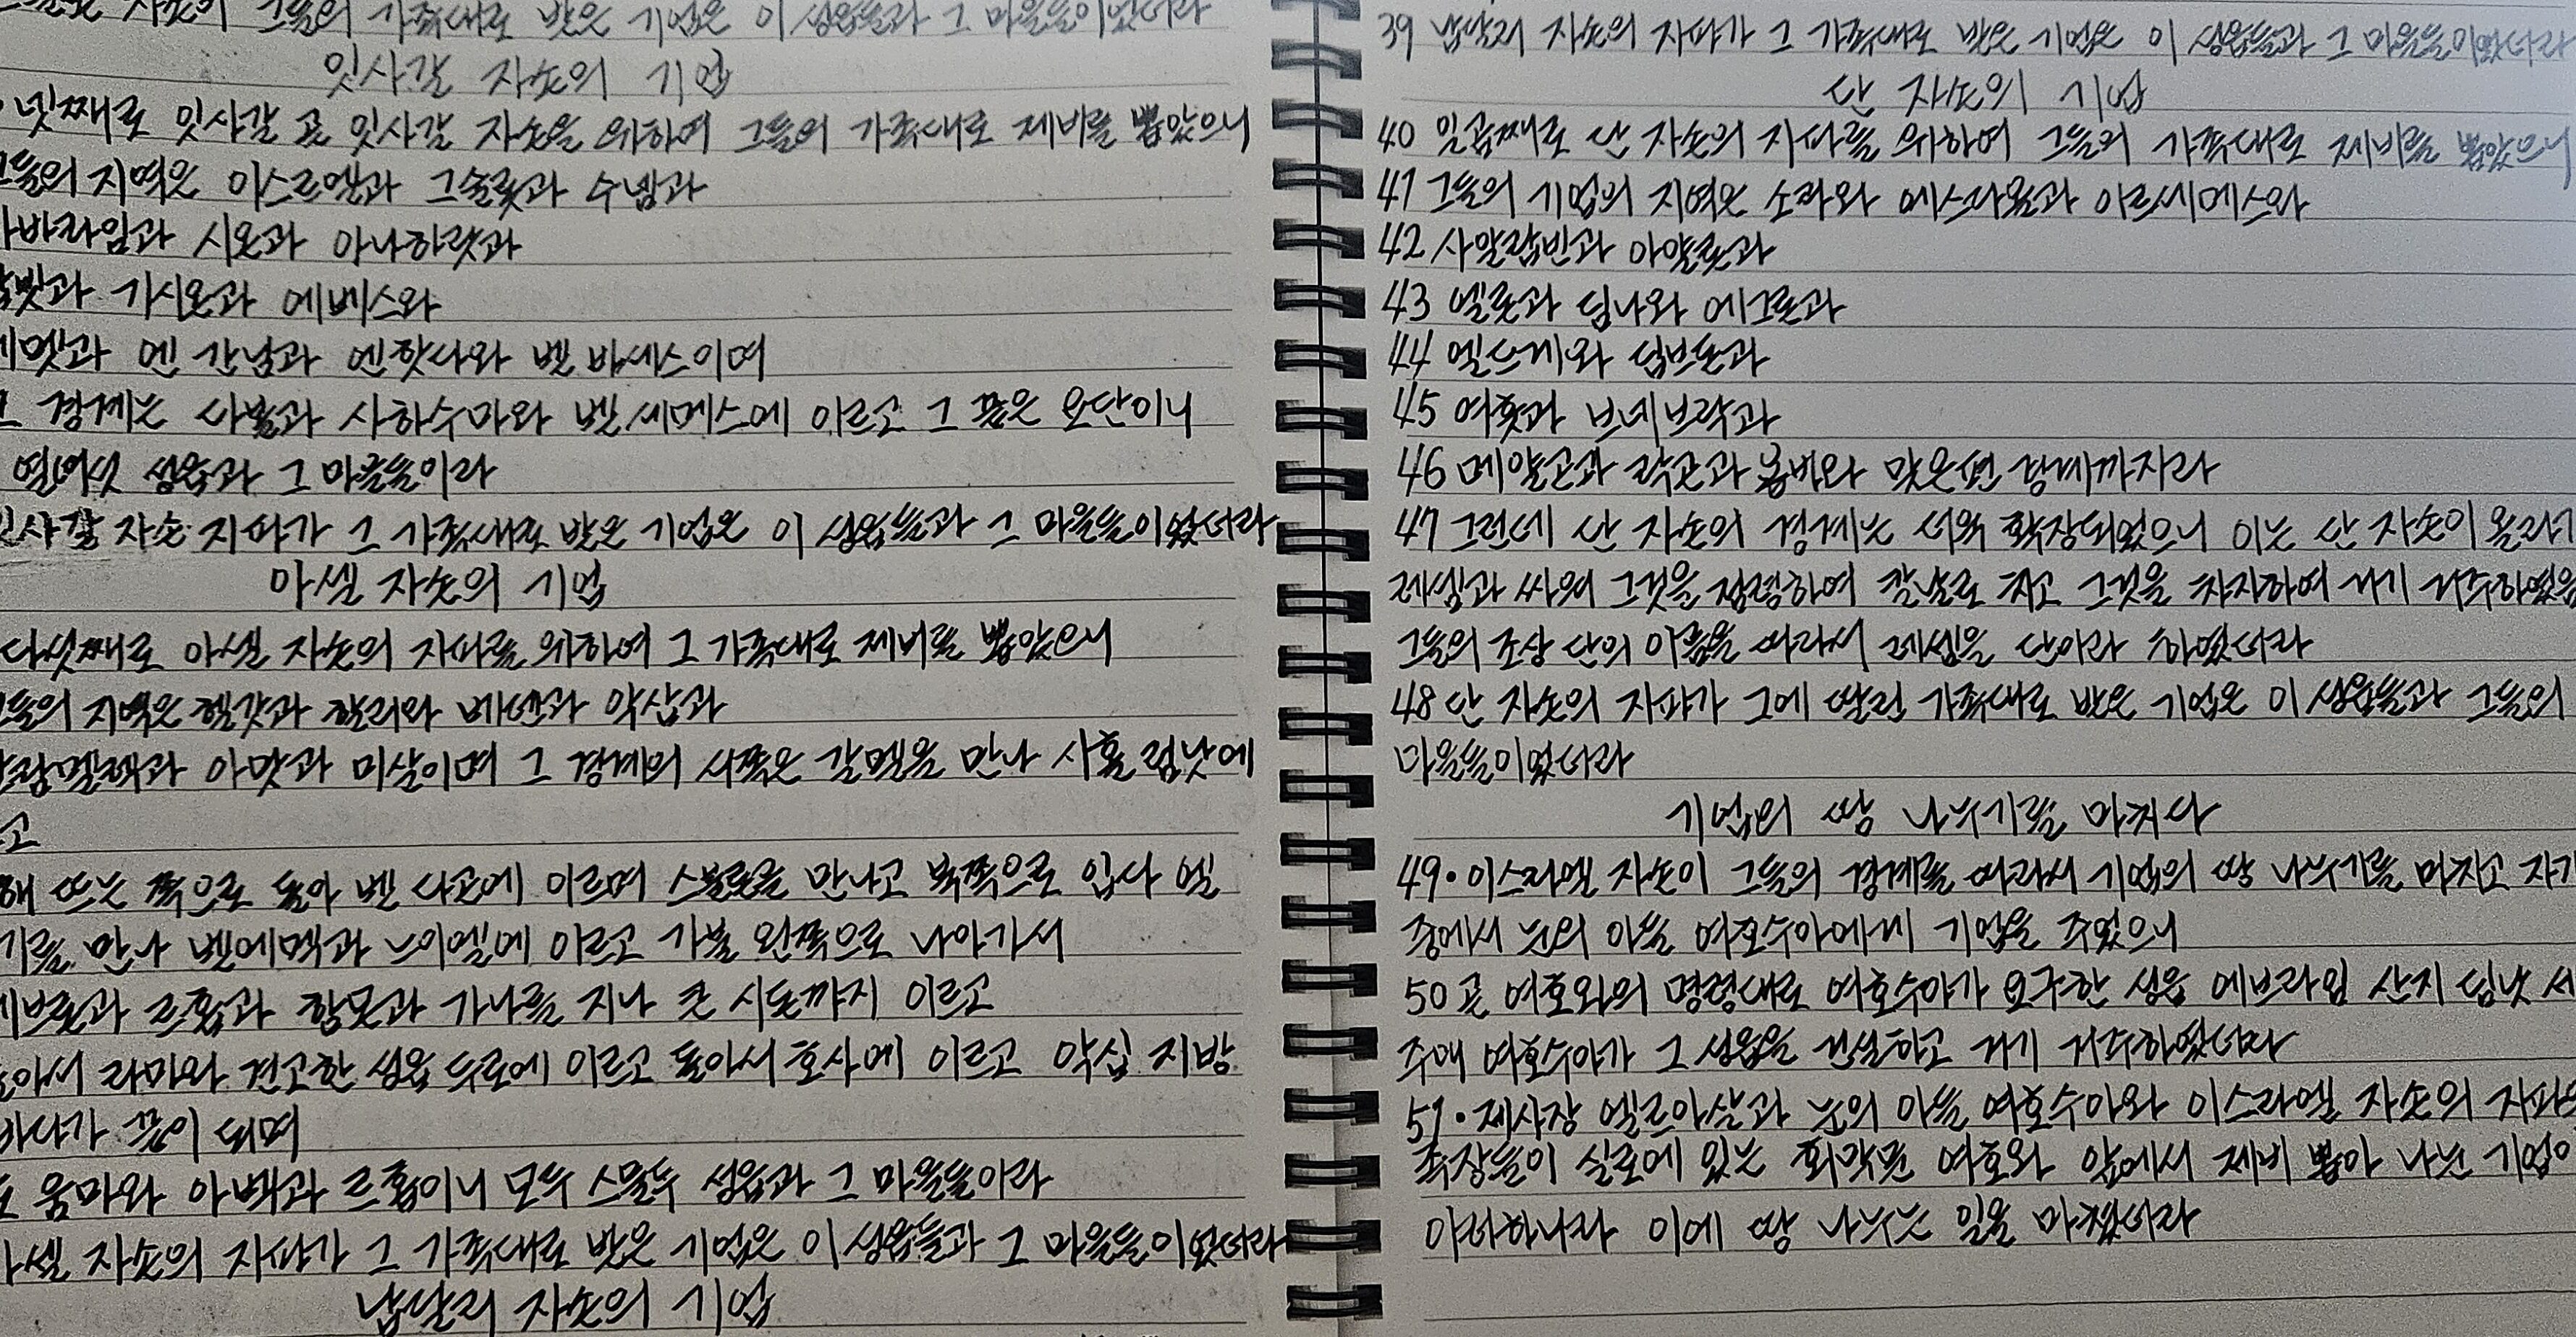 자손의 그들의 가족대로 받은 기업은 이 성읍들과 그 마을들이었더라
잇사갈 자손의 기업
넷째로 잇사갈 곧 잇사갈 자손을 위하여 그들의 가족대로 제비를 뽑았으니
그들의 지역은 이스르엘과 그술롯과 수넴과
바라임과 시온과 아나하랏과
빗과 기시온과 에베스와
멧과 엔 간님과 엔핫다와 벧 바세스이며
그 경계는 다볼과 사하수마와 벧 세메스에 이르고 그 끝은 요단이니
열여섯 성읍과 그 마을들이라
잇사갈 자손 지파가 그 가족대로 받은 기업은 이 성읍들과 그 마을들이었더라
아셀 자손의 기업
다섯째로 아셀 자손의 지파를 위하여 그 가족대로 제비를 뽑았으니
그들의 지역은 헬갓과 할리와 베덴과 악삽과
람멜렉과 아맛과 미살이며 그 경계의 서쪽은 갈멜을 만나 시홀 림낫에
고
해 뜨는 쪽으로 돌아 벧 다곤에 이르며 스불론을 만나고 북쪽으로 입다 엘
기를 만나 벧에멕과 느이엘에 이르고 가불 왼쪽으로 나아가서
에브론과 르홉과 함몬과 가나를 지나 큰 시돈까지 이르고
돌아서 라마와 견고한 성읍 두로에 이르고 돌아서 호사에 이르고 악십 지방
바다가 끝이 되며
또 움마와 아벡과 르홉이니 모두 스물두 성읍과 그 마을들이라
아셀 자손의 지파가 그 가족대로 받은 기업은 이 성읍들과 그 마을들이었더라
납달리 자손의 기업
39 납달리 자손의 지파가 그 가족대로 받은 기업은 이 성읍들과 그 마을들이었더라
단 자손의 기업
40 일곱째로 단 자손의 지파를 위하여 그들의 가족대로 제비를 뽑았으니
41 그들의 기업의 지역은 소라와 에스다올과 이르세메스와
42 사알랍빈과 아얄론과
43 엘론과 딤나와 에그론과
44 엘드게와 깁브돈과
45 여훗과 브네브락과
46 메얄곤과 락곤과 욥바와 맞은편 경계까지라
47 그런데 단 자손의 경계는 더욱 확장되었으니 이는 단 자손이 올라가
레셈과 싸워 그것을 점령하여 칼날로 치고 그것을 차지하여 거기 거주하였음
그들의 조상 단의 이름을 따라서 레셈을 단이라 하였더라
48 단 자손의 지파가 그에 딸린 가족대로 받은 기업은 이 성읍들과 그들의
마을들이었더라
기업의 땅 나누기를 마치다
49 • 이스라엘 자손이 그들의 경계를 따라서 기업의 땅 나누기를 마치고 자기
중에서 눈의 아들 여호수아에게 기업을 주었으니
50 곧 여호와의 명령대로 여호수아가 요구한 성읍 에브라임 산지 딤낫 세
주매 여호수아가 그 성읍을 건설하고 거기 거주하였더라
51 • 제사장 엘르아살과 눈의 아들 여호수아와 이스라엘 자손의 지파의
족장들이 실로에 있는 회막문 여호와 앞에서 제비 뽑아 나눈 기업이
이러하니라 이에 땅 나누는 일을 마쳤더라